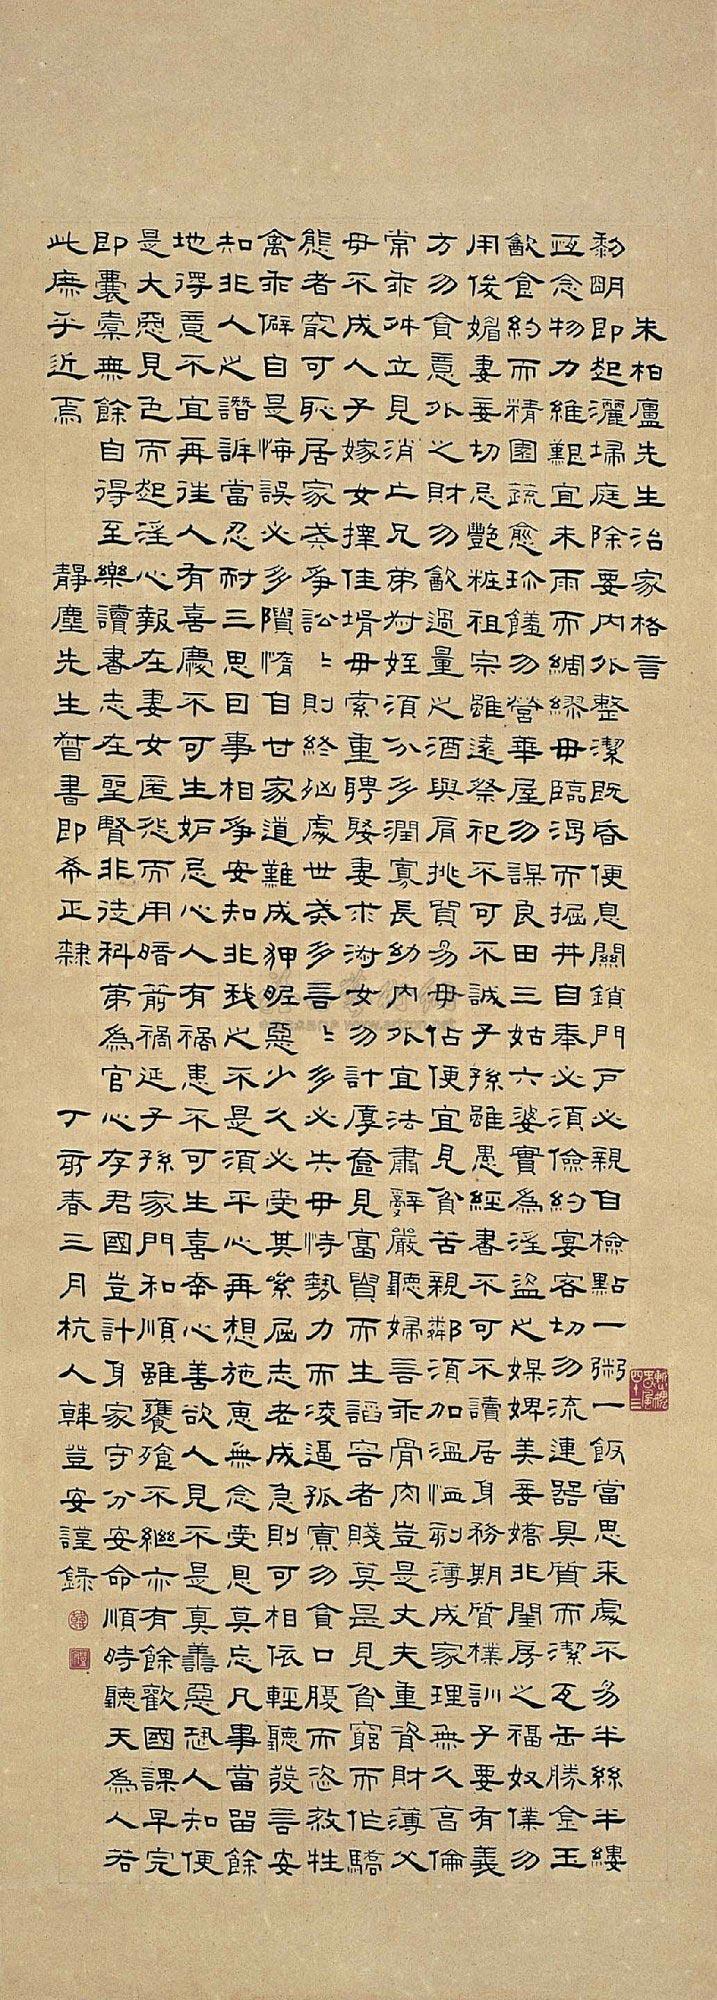 朱柏廬先生治家格言
黎明即起灑埽庭除要内外整潔既昏便息關鎖門戶必親自檢點一粥一飯當思来處不易半絲半縷
恆念物力維艱宜未雨而綢繆毋臨渴而掘井自奉必須儉約宴客切勿流連器具質而潔瓦缶勝金玉
飲食約而精園蔬愈珍饈勿營華屋勿謀良田三姑六婆實為淫盜之媒婢美妾嬌非閨房之福奴僕勿
用俊媚妻妾切忌艷粧祖宗雖遠祭祀不可不誠子孫雖愚經書不可不讀居身務期質樸訓子要有義
方勿貪意外之財勿飲過量之酒與肩挑貿易毋佔便宜見貧苦親鄰須加溫恤刻薄成家理無久享倫
常乖舛立見消亡兄弟叔姪須分多潤寡長幼内外宜法肅辭嚴聽婦言乖骨肉豈是丈夫重資財薄父
母不成人子嫁女擇佳壻毋索重聘娶妻求淑女勿計厚奩見富貴而生謟容者賤莫是見貧窮而作驕
態者㝡可恥居家戒爭訟〻則終凶處世戒多言〻多必失毋恃勢力而凌逼孤寡勿貪口腹而恣殺牲
禽乖僻自是悔誤必多隤惰自甘家道難成狎昵惡少久必受其累屈志老成急則可相依輕聽發言安
知非人之譖訴當忍耐三思因事相爭安知非我之不是須平心再想施惠無念受恩莫忘凡事當留餘
地得意不宜再往人有喜慶不可生妒忌心人有禍患不可生喜幸心善欲人見不是真善惡恐人知便
是大惡見色而起淫心報在妻女匿怨而用暗箭禍延子孫家門和順雖饔飧不繼亦有餘歡國課早完
即囊橐無餘自得至樂讀書志在聖賢非徒科第為官心存君國豈計身家守分安命順時聽天為人若
此庶乎近焉　靜塵先生督書即希正隸　丁亥春三月杭人韓登安謹錄
韓